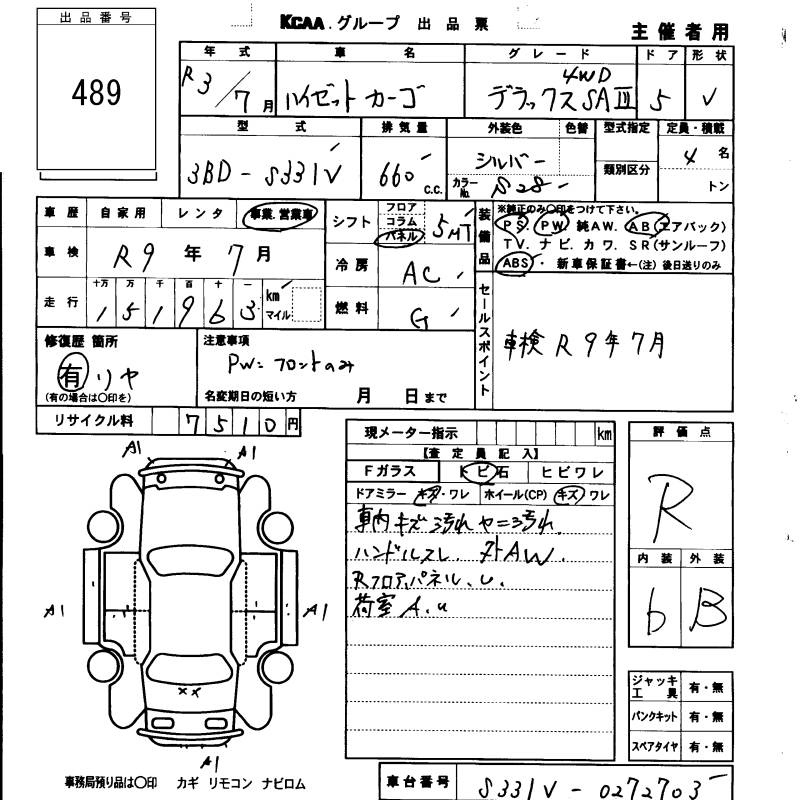 出品番号
489
KCAA.グループ 出品票
主催者用
年式 車名 グレード ドア 形状
R3/7月 ハイゼットカーゴ 4WD デラックスSAⅢ 5 V
型式 排気量 外装色 色替 型式指定 定員・積載
3BD-S331V 660 c.c. シルバー カラーNo. S28 類別区分 4名 トン
車歴 自家用 レンタ 事業.営業車
車検 R9年7月
走行 十万 万 千 百 十 一 km マイル
151963
シフト フロア コラム パネル 5MT
冷房 AC
燃料 G
装備品 ※純正のみ○印をつけて下さい。
PS. PW. 純AW. AB(エアバック)
TV. ナビ. カワ. SR(サンルーフ)
ABS・ 新車保証書←(注)後日送りのみ
セールスポイント
車検 R9年7月
修復歴 箇所
有 リヤ
(有の場合は○印を)
注意事項
PW=フロントのみ
名変期日の短い方 月 日まで
リサイクル料 7510円
現メーター指示 km
【査定員記入】
Fガラス トビ石 ヒビワレ
ドアミラー キズ・ワレ ホイール(CP) キズ ワレ
車内キズ汚れヤニ汚れ.
ハンドルスレ. 外AW.
Rフロア.パネル.U.
荷室 A.U
評価点
R
内装 外装
b B
A1 A1
A1 A1
××
A1
ジャッキ工具 有・無
パンクキット 有・無
スペアタイヤ 有・無
事務局預り品は○印 カギ リモコン ナビロム
車台番号 S331V-0272703